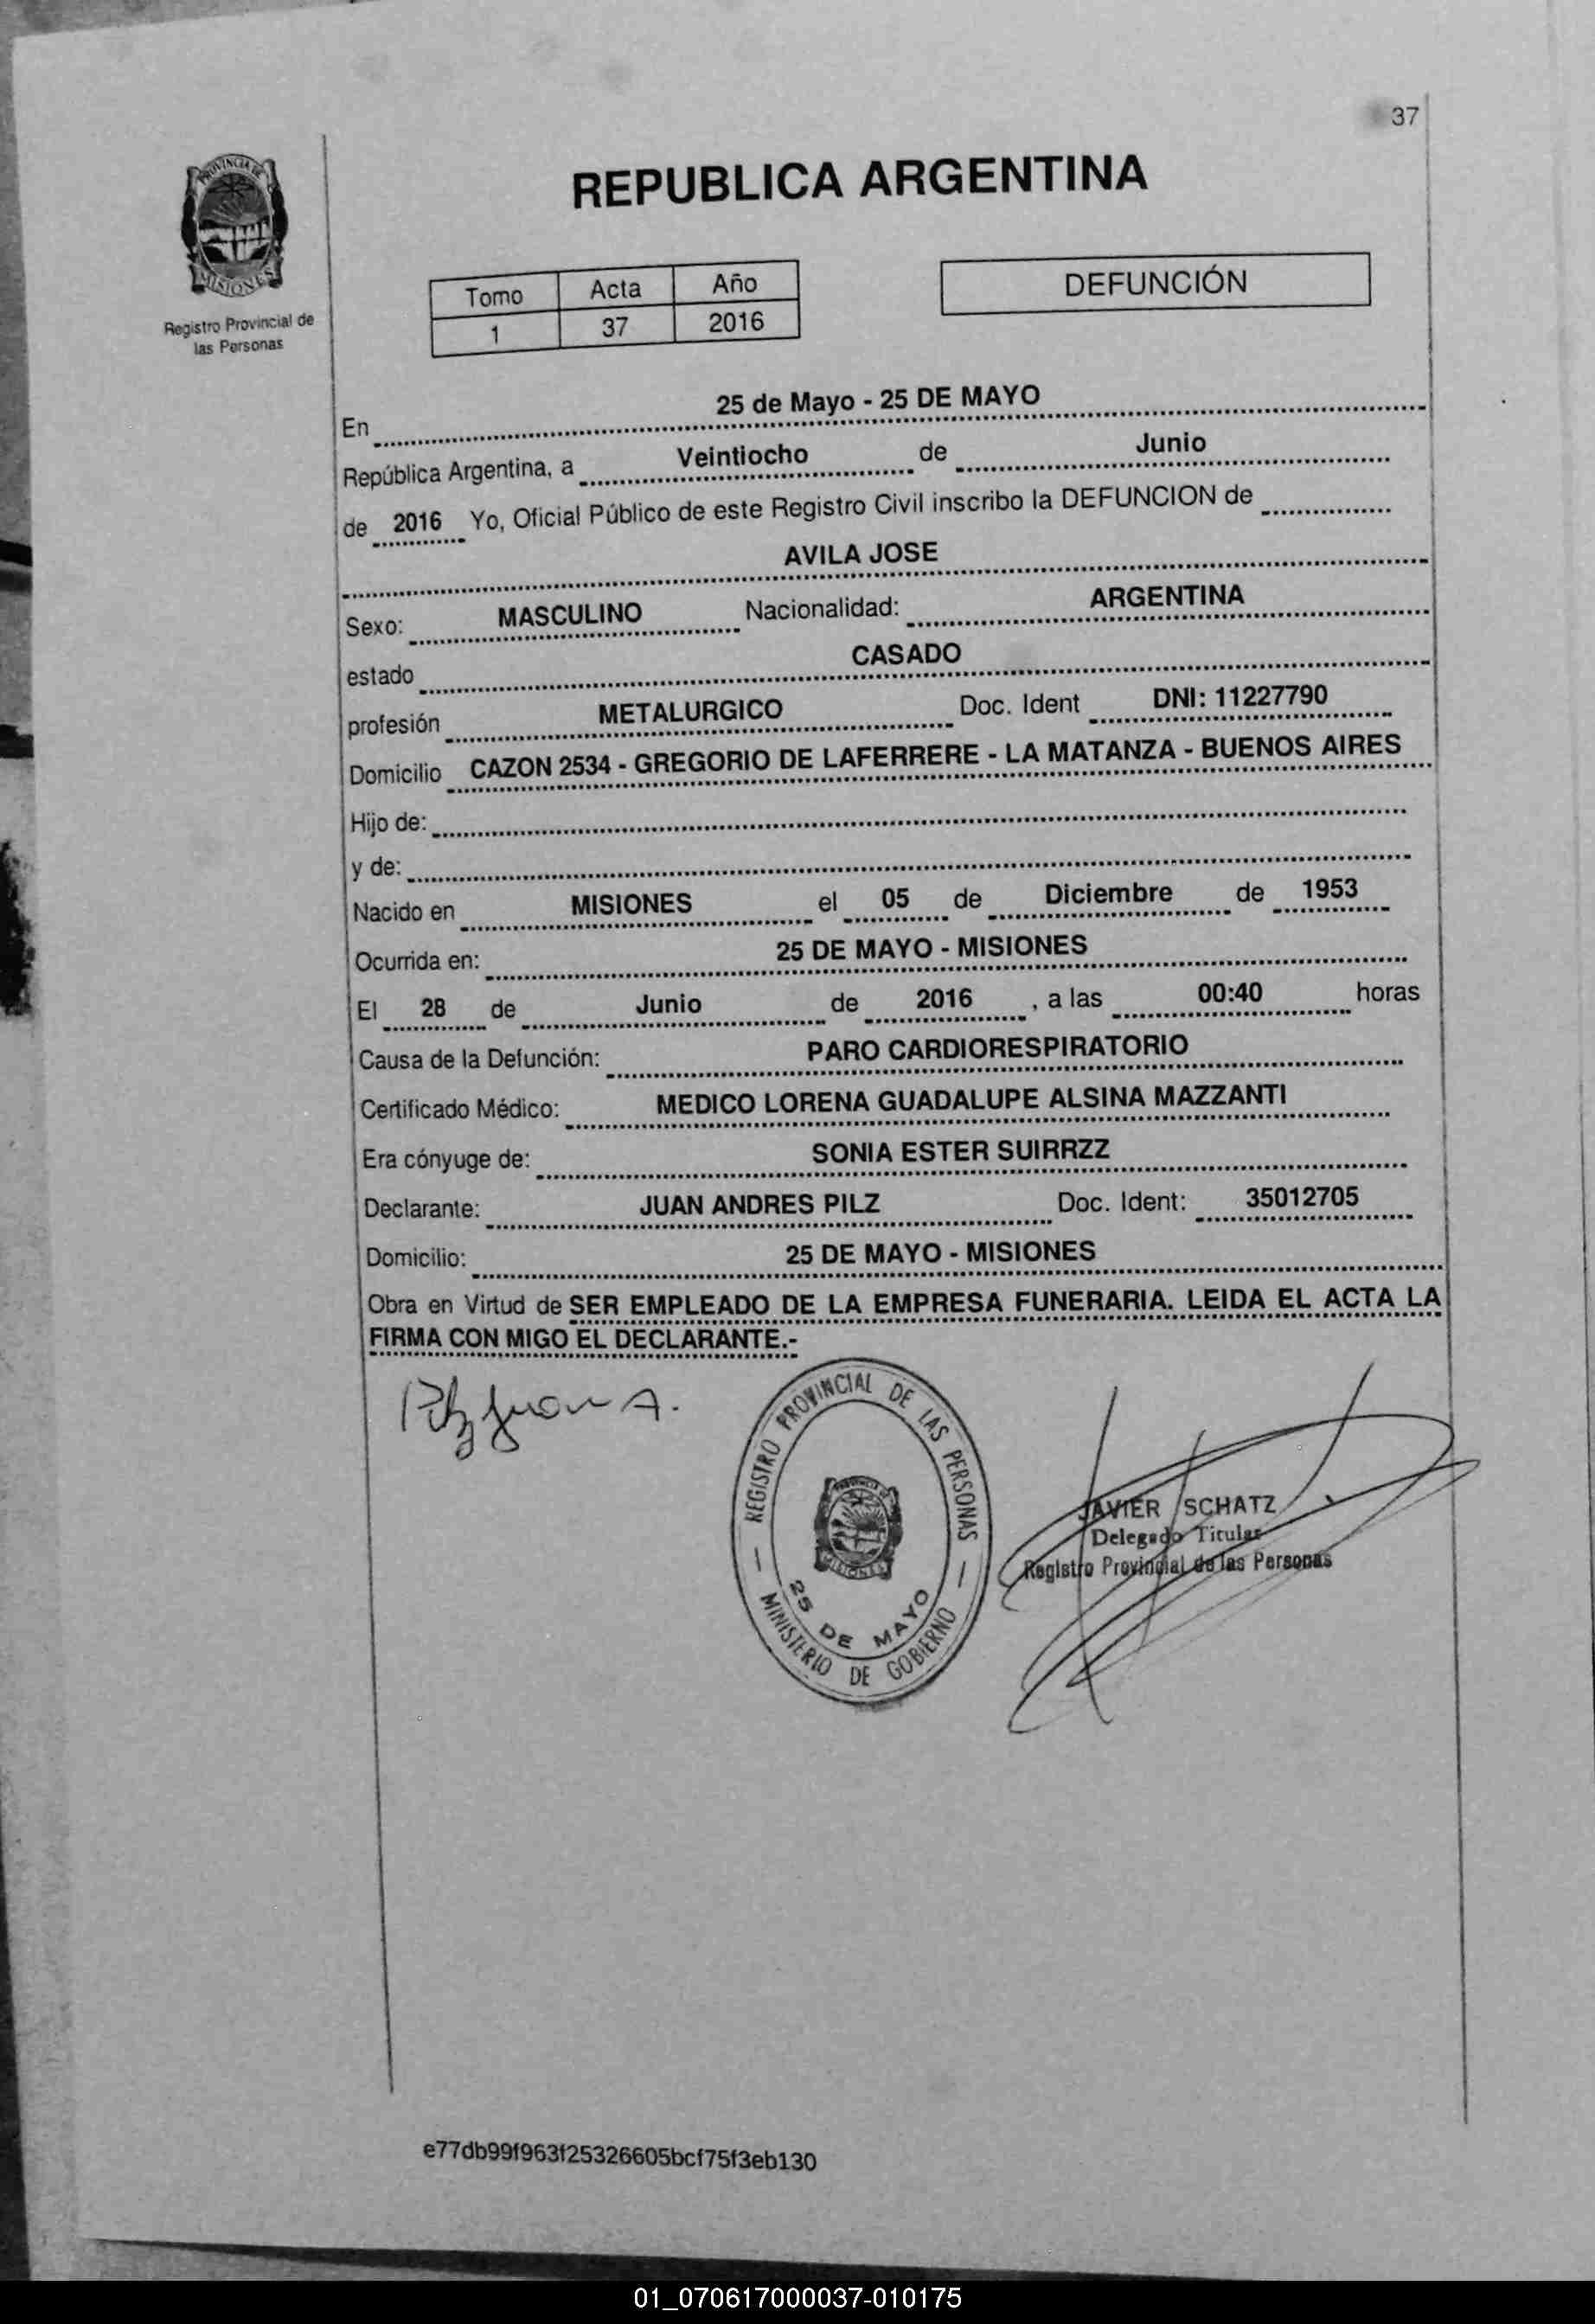 37
PROVINCIA DE
MISIONES
Registro Provincial de
las Personas
REPUBLICA ARGENTINA
Tomo Acta Año
1 37 2016
DEFUNCIÓN
25 de Mayo - 25 DE MAYO
En
República Argentina, a Veintiocho de Junio
de 2016 Yo, Oficial Público de este Registro Civil inscribo la DEFUNCION de
AVILA JOSE
Sexo: MASCULINO Nacionalidad: ARGENTINA
estado CASADO
profesión METALURGICO Doc. Ident DNI: 11227790
Domicilio CAZON 2534 - GREGORIO DE LAFERRERE - LA MATANZA - BUENOS AIRES
Hijo de:
y de:
Nacido en MISIONES el 05 de Diciembre de 1953
Ocurrida en: 25 DE MAYO - MISIONES
El 28 de Junio de 2016 , a las 00:40 horas
Causa de la Defunción: PARO CARDIORESPIRATORIO
Certificado Médico: MEDICO LORENA GUADALUPE ALSINA MAZZANTI
Era cónyuge de: SONIA ESTER SUIRRZZ
Declarante: JUAN ANDRES PILZ Doc. Ident: 35012705
Domicilio: 25 DE MAYO - MISIONES
Obra en Virtud de SER EMPLEADO DE LA EMPRESA FUNERARIA. LEIDA EL ACTA LA
FIRMA CON MIGO EL DECLARANTE.-
Pilz Juan A.
REGISTRO PROVINCIAL DE LAS PERSONAS
MISIONES
25 DE MAYO
MINISTERIO DE GOBIERNO
JAVIER SCHATZ
Delegado Titular
Registro Provincial de las Personas
e77db99f963f25326605bcf75f3eb130
01_070617000037-010175